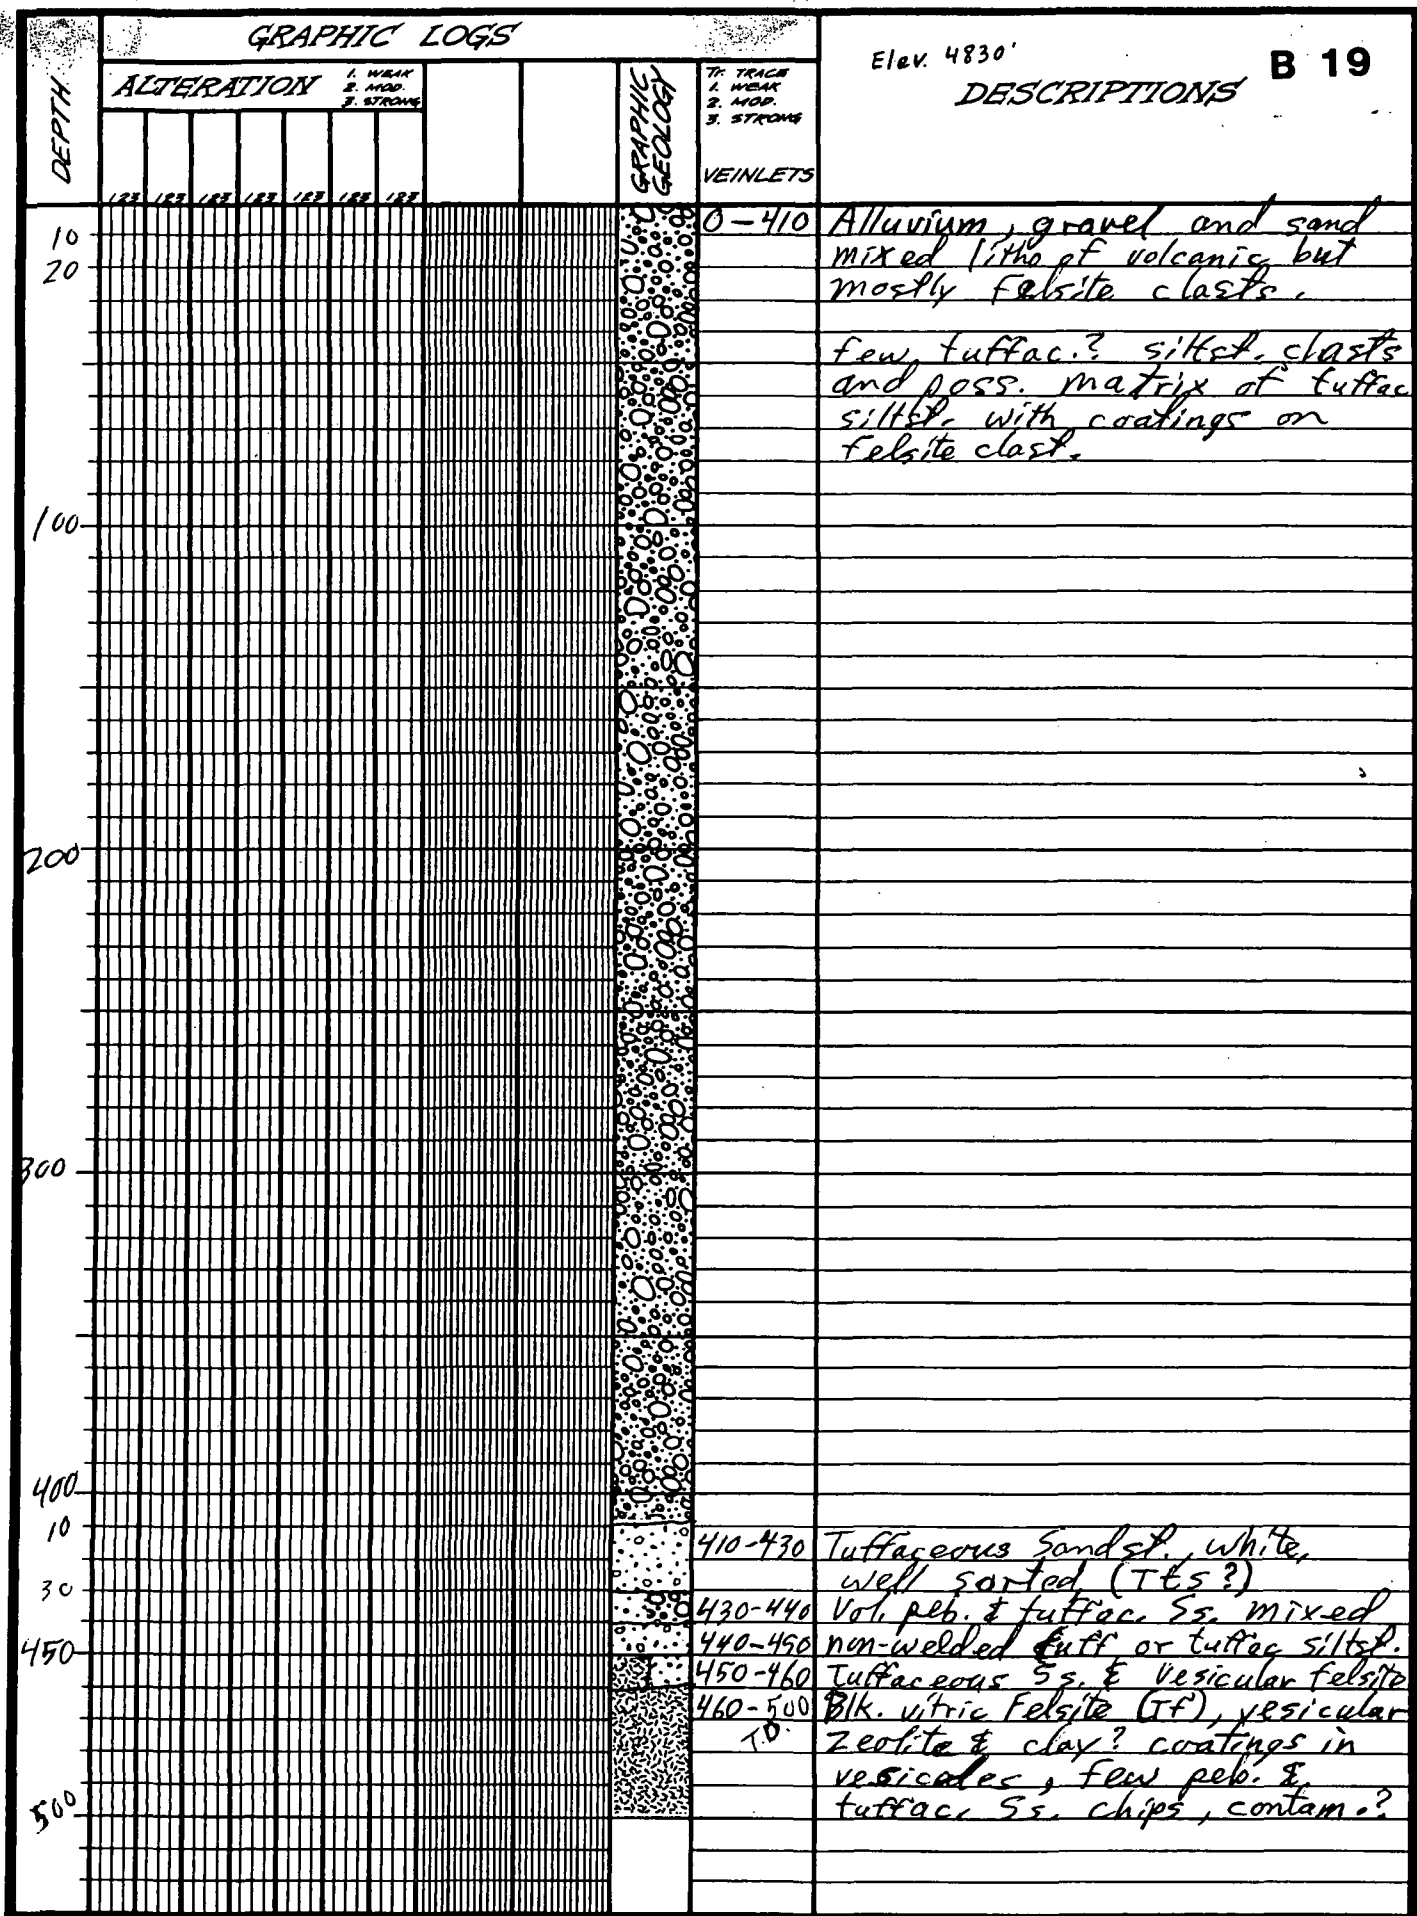 GRAPHIC LOGS
Elev. 4830'
B 19
DESCRIPTIONS
DEPTH
ALTERATION
1. WEAK
2. MOD.
3. STRONG
GRAPHIC
GEOLOGY
Tr. TRACE
1. WEAK
2. MOD.
3. STRONG
VEINLETS
123 123 123 123 123 123 123
10
20
100
200
300
400
10
30
450
500
0-410 Alluvium, gravel and sand
mixed litho of volcanic but
mostly felsite clasts.
few tuffac.? siltst. clasts
and poss. matrix of tuffac
siltst. with coatings on
felsite clast.
410-430 Tuffaceous Sandst., white,
well sorted (Tts?)
430-440 Vol. peb. & tuffac. Ss. mixed
440-450 non-welded tuff or tuffac siltst.
450-460 Tuffaceous Ss. & vesicular felsite
460-500 Blk. vitric Felsite (Tf), vesicular
T.D. Zeolite & clay? coatings in
vesicales, few peb. &
tuffac. Ss. chips, contam.?